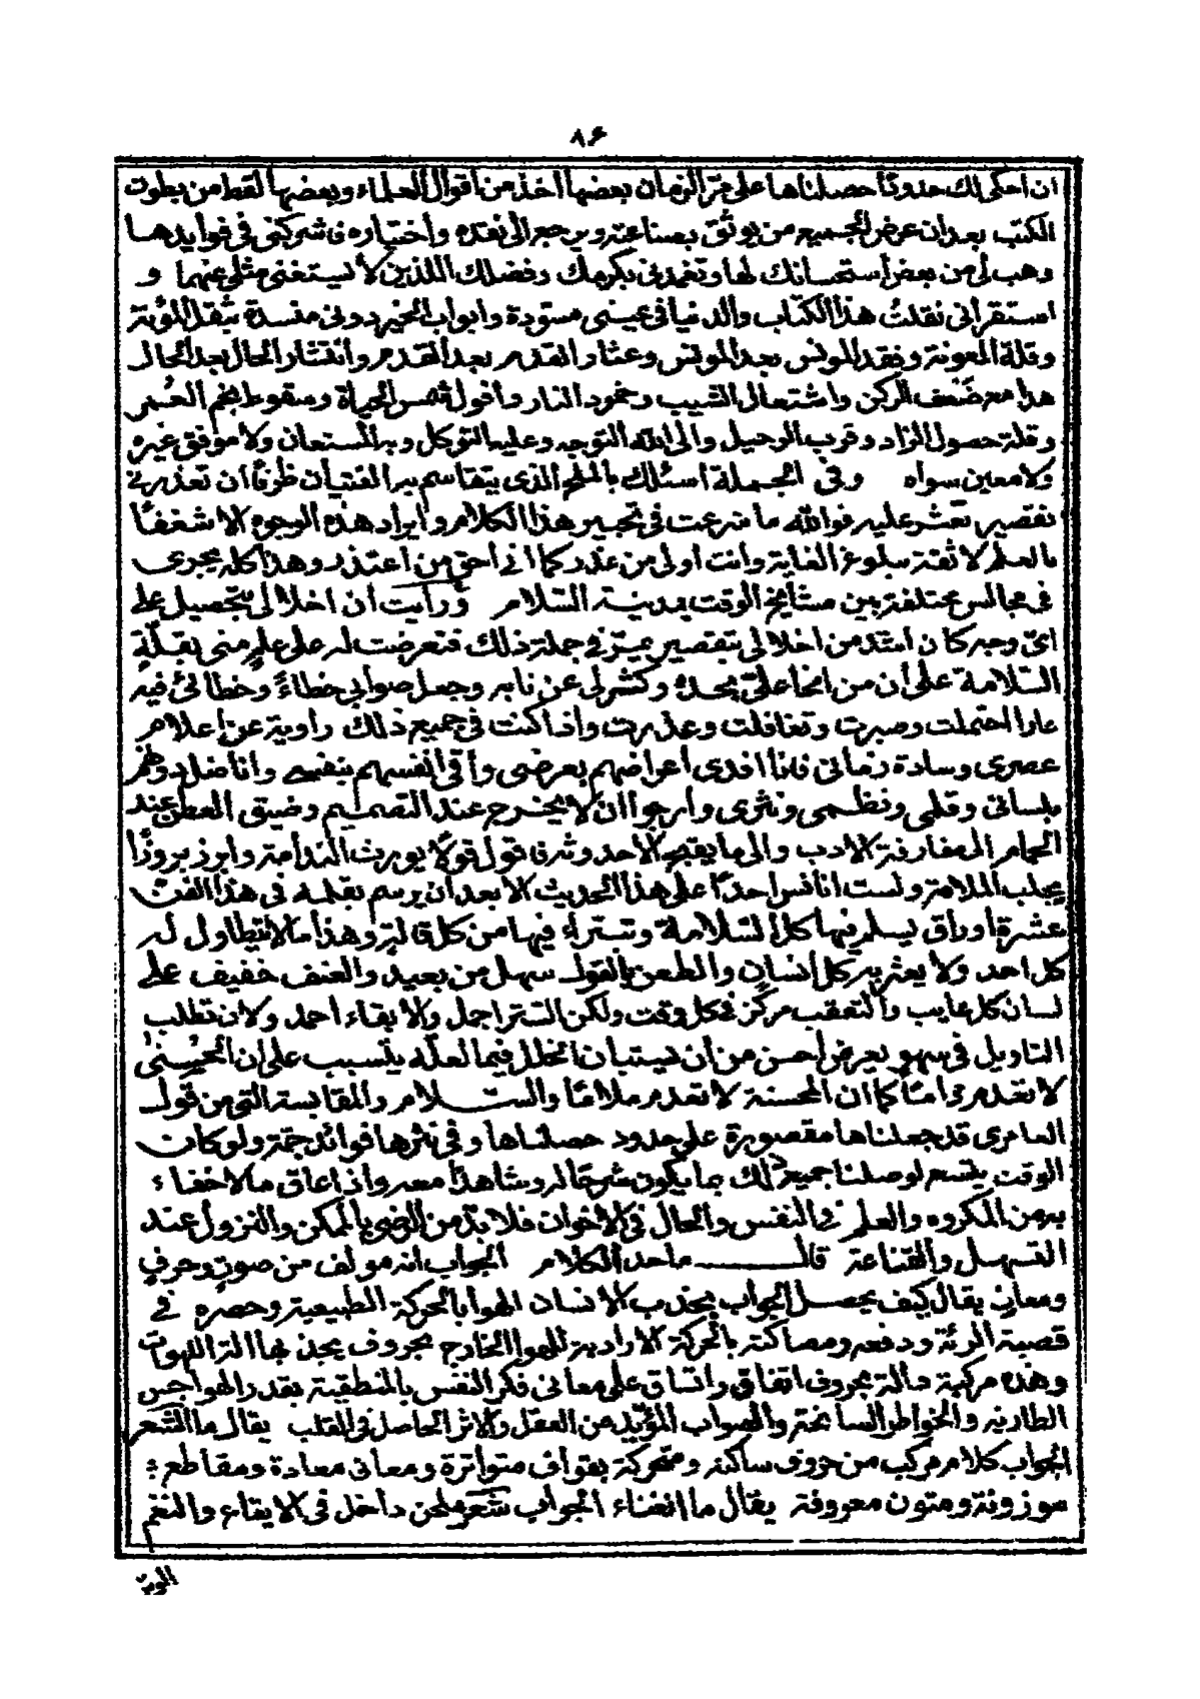 ٨۶
ان احكى لك حدودًا حصلناها على مرّ الزمان بعضها اخذ من اقوال العلماء وبعضها لقط من بطون
الكتب بعد ان عرض الجميع من يوثق بصناعته ويرجع الى نقده واختياره فاشركنى فى فوايدها
وهب لى من بعض استحسانك لها وتغمدنى بكرمك وفضلك اللذين لا يستغنى مثلى عنهما و
استقر أنى نقلتُ هذا الكتاب والدنيا فى عينى مسودة وابواب الخير دونى منسدة بثقل المؤنة
وقلة المعونة وفقد المونس بعد المونس وعثار القدم بعد القدم وانتشار الحال بعد الحال
هذا مع ضَعف الركن واشتعال الشيب وخمود النار وأفول شمس الحياة وسقوط نجم العُمر
وقلة حصول الزاد وقرب الرحيل والى الله التوجه وعليه التوكل وبه المستعان ولا موفق غيره
ولا معين سواه وفى الجملة اسئلك بالملح الذى يتقاسم به الفتيان ظرفًا ان تعذر فى
تقصير تعثر عليه فوالله ما شرعت فى تحبير هذا الكلام وايراد هذه الوجوه الا شغفًا
بالعلم لا ثقة ببلوغ الغاية وانت اولى من عذر كما انى احق من اعتذر وهذا كله يجرى
فى مجالس مختلفة بين مشايخ الوقت بمدينة السلام ورأيت أن اخلالى بتحصيل على
اىّ وجه كان اشد من اخلالى بتقصير يمرّ فى جملة ذلك فتعرضت له على علم منى بقلّة
السلامة على أن من انحا علىّ بحده وكشر لى عن نابه وجعل صوابى خطاءً وخطائى فيه
عارا احتملت وصبرت وتغافلت وعذرت واذا كنت فى جميع ذلك راوية عن اعلام
عصرى وسادة زمانى فانا افدى اعراضهم بعرضى وأقى انفسهم بنفسى واناضل دونهم
بلسانى وقلمى ونظمى ونثرى وارجوا ان لا يخرج عند التصميم وضيق العطن عند
الحمام المفارقة الادب والى ما يقبح الاحدوثة فاقول قولًا يورث الندامة وابرز بروزًا
يجلب الملامة ولست انافس احدًا على هذا الحديث الا بعد ان يرسم بقلمه فى هذا الفن
عشرة اوراق يسلم فيها كل السلامة وتتبراء فيها من كل قالة وهذا ما لا يتطاول له
كل احد ولا يعثر به كل انسان والطعن بالقول سهل من بعيد والعنف خفيف على
لسان كل عايب والتعقب مركز فى كل وقت ولكن الستر اجمل والابقاء احمد ولان تطلب
التاويل فى سهو يعرض احسن من أن يستبان الخلل فيما لعلّه يتسبب على ان الحُسنىٰ
لا تعدم ذامًا كما ان المحسنة لا تعدم ملامًا والسلام والمقابسة التى من قول
العامرى قد جعلناها مقصورة على حدود حصلناها وفى نثرها فوائد جمّة ولو كان
الوقت يتسع لوصلنا جميع ذلك بما يكون شرحًا له وشاهدًا معه واذ اعاق ما لا خفاء
به من المكروه والعلم فى النفس والحال فى الاخوان فلا بدّ من الرضى بالممكن والنزول عند
التسهل والقناعة قال ما حد الكلام الجواب انه مولف من صوت وحرف
ومعانى يقال كيف يحصل الجواب بجذب الانسان الهوا بالحركة الطبيعية وحصره فى
قصبة الرئة ودفعه ومصاكته بالحركة الارادية للهوا الخارج بحروف يجذبها الة اللهوات
وهذه مركبة دالة بحروف اتفاق واتساق على معانى فكر النفس بالمنطقية بقدر الهواجس
الطارية والخواطر السانحة والصواب المؤيّد من العقل والاثر الحاصل فى القلب يقال ما الشعر
الجواب كلام مركب من حروف ساكنة ومتحركة بقوافى متواترة ومعانى معادة ومقاطع
موزونة ومتون معروفة يقال ما الغناء الجواب شعر ملحن داخل فى الايقاع والنغم